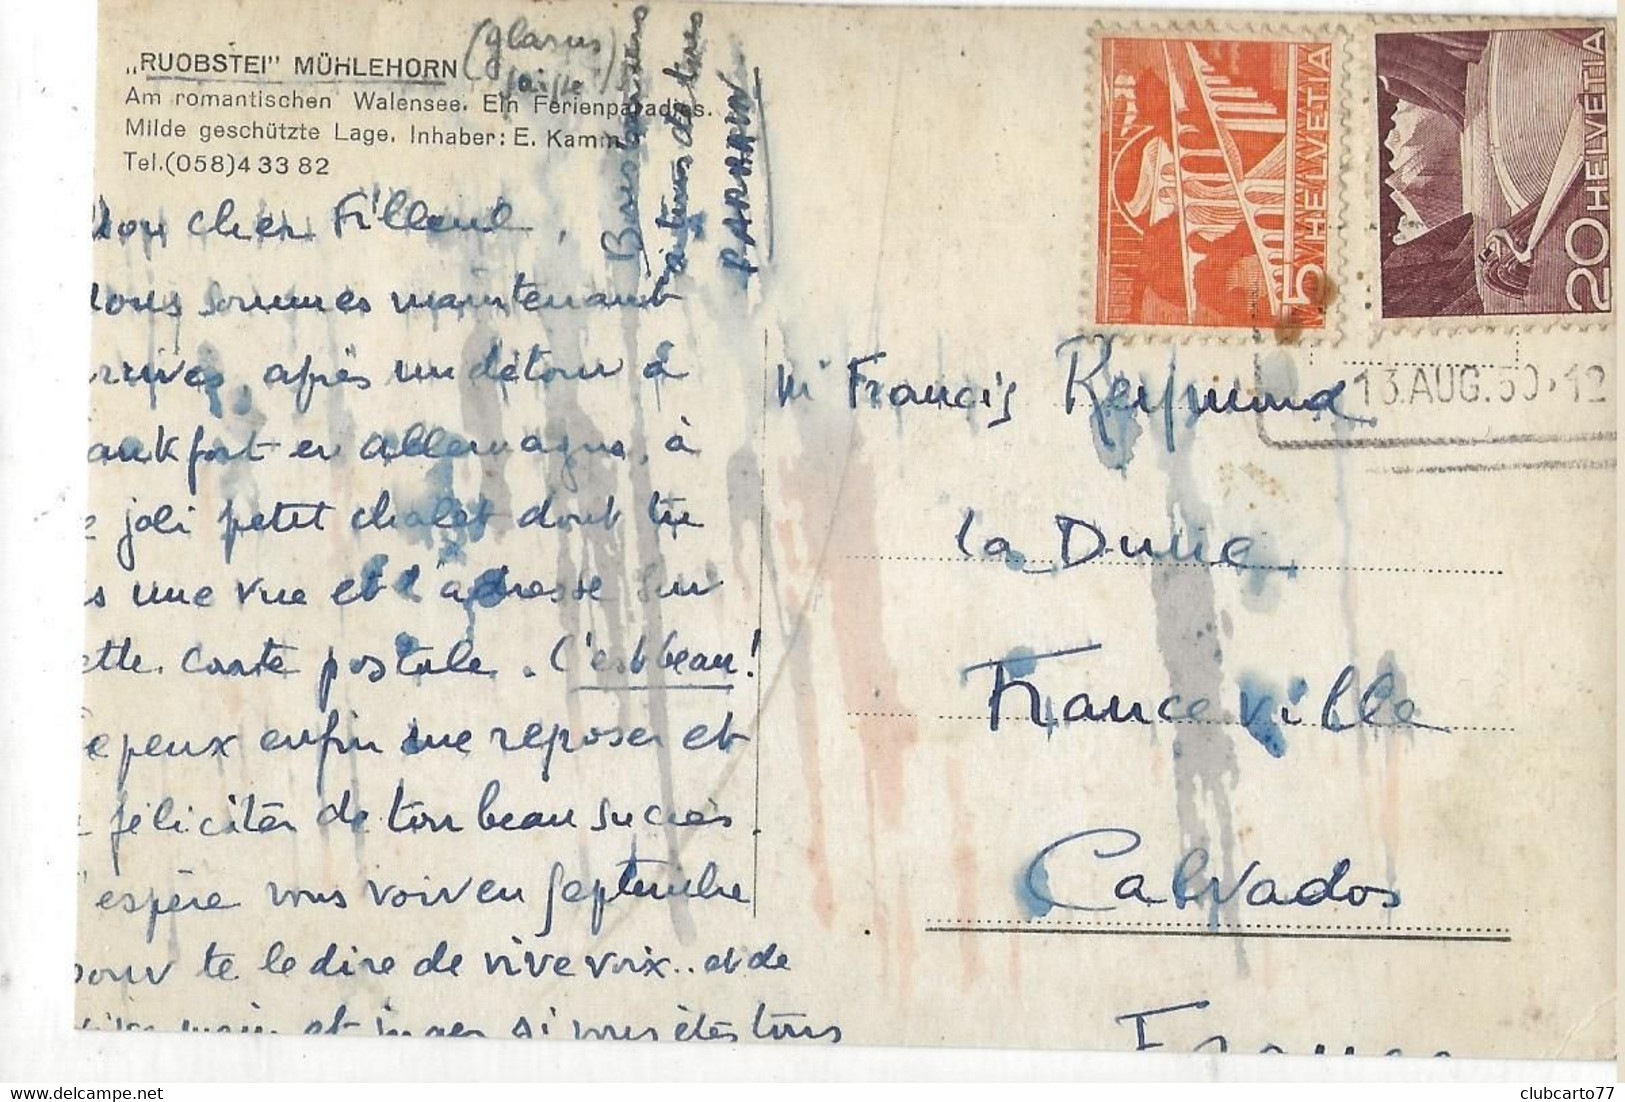 „RUOBSTEI" MÜHLEHORN (glarus)
Am romantischen Walensee. Ein Ferienparadies.
Milde geschützte Lage. Inhaber: E. Kamm
Tel.(058)4 33 82
mon cher Filleul,
nous sommes maintenant
rrivés, après un détour à
ankfort en allemagne, à
e joli petit chalet dont tu
s une vue et l'adresse sur
ette carte postale. C'est beau!
Je peux enfin me reposer et
féliciter de ton beau succès.
J'espère vous voir en septembre
pour te le dire de vive voix.. et de
main et juger si vous êtes tous
Bons baisers
à tous de tes
PARRAIN
Mr Francis Reymond
la Dune
Franceville
Calvados
France
HELVETIA 5
HELVETIA 20
13.AUG.50.12
clubcarto77